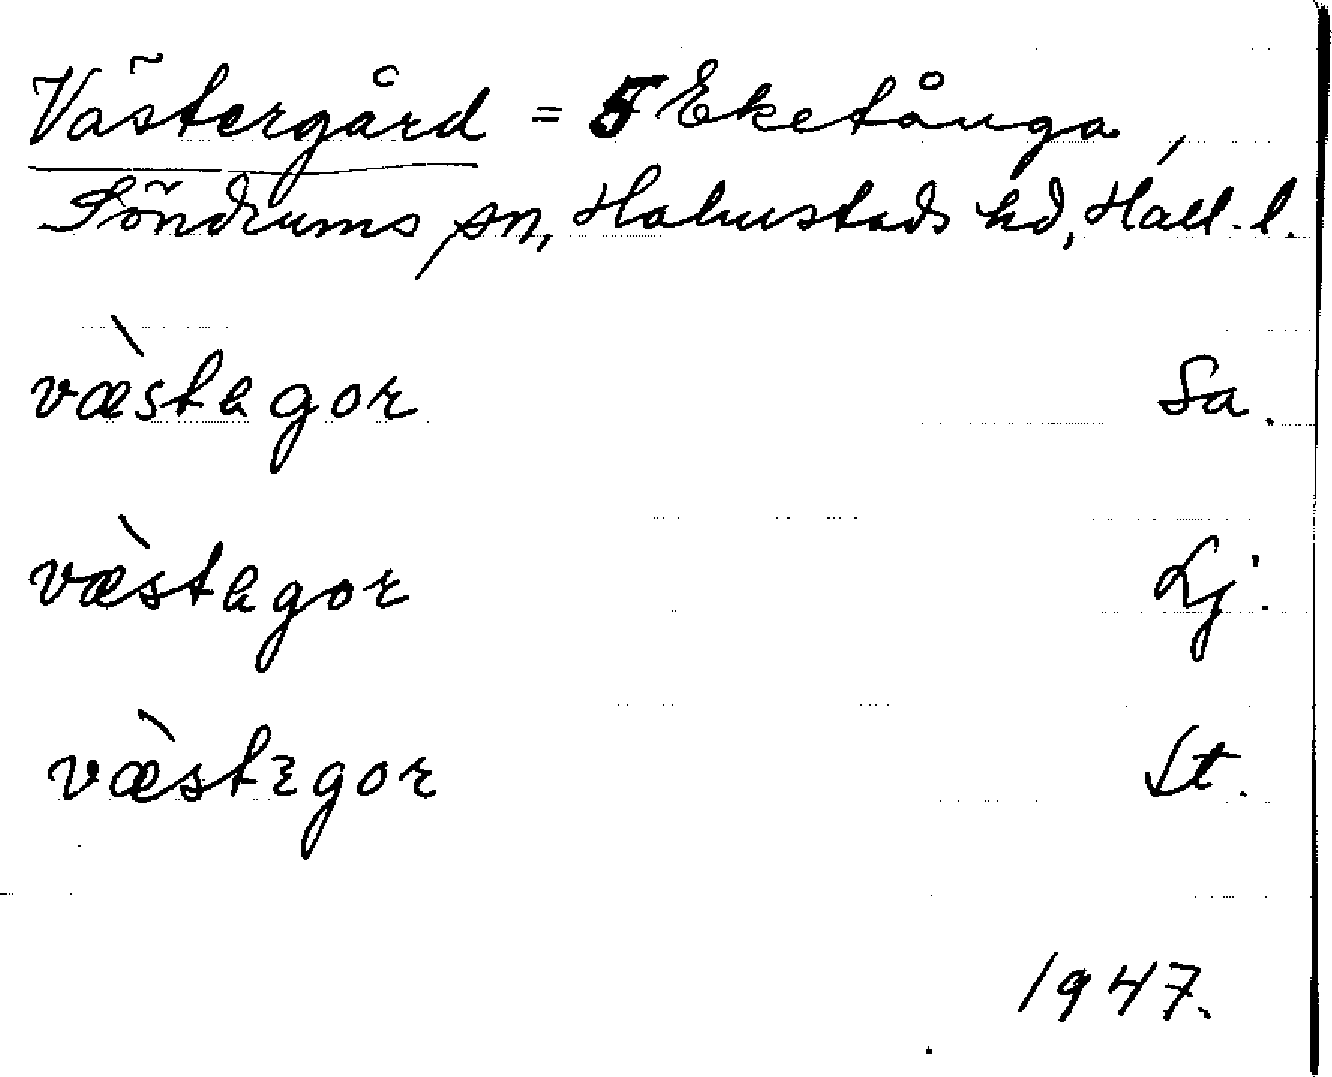 Västergård = 5 Eketånga,
Söndrums sn, Halmstads hd, Hall. l.
væ̀stɐgor Sa.
væ̀stɐgor Lj.
væ̀stɛgor St.
1947.